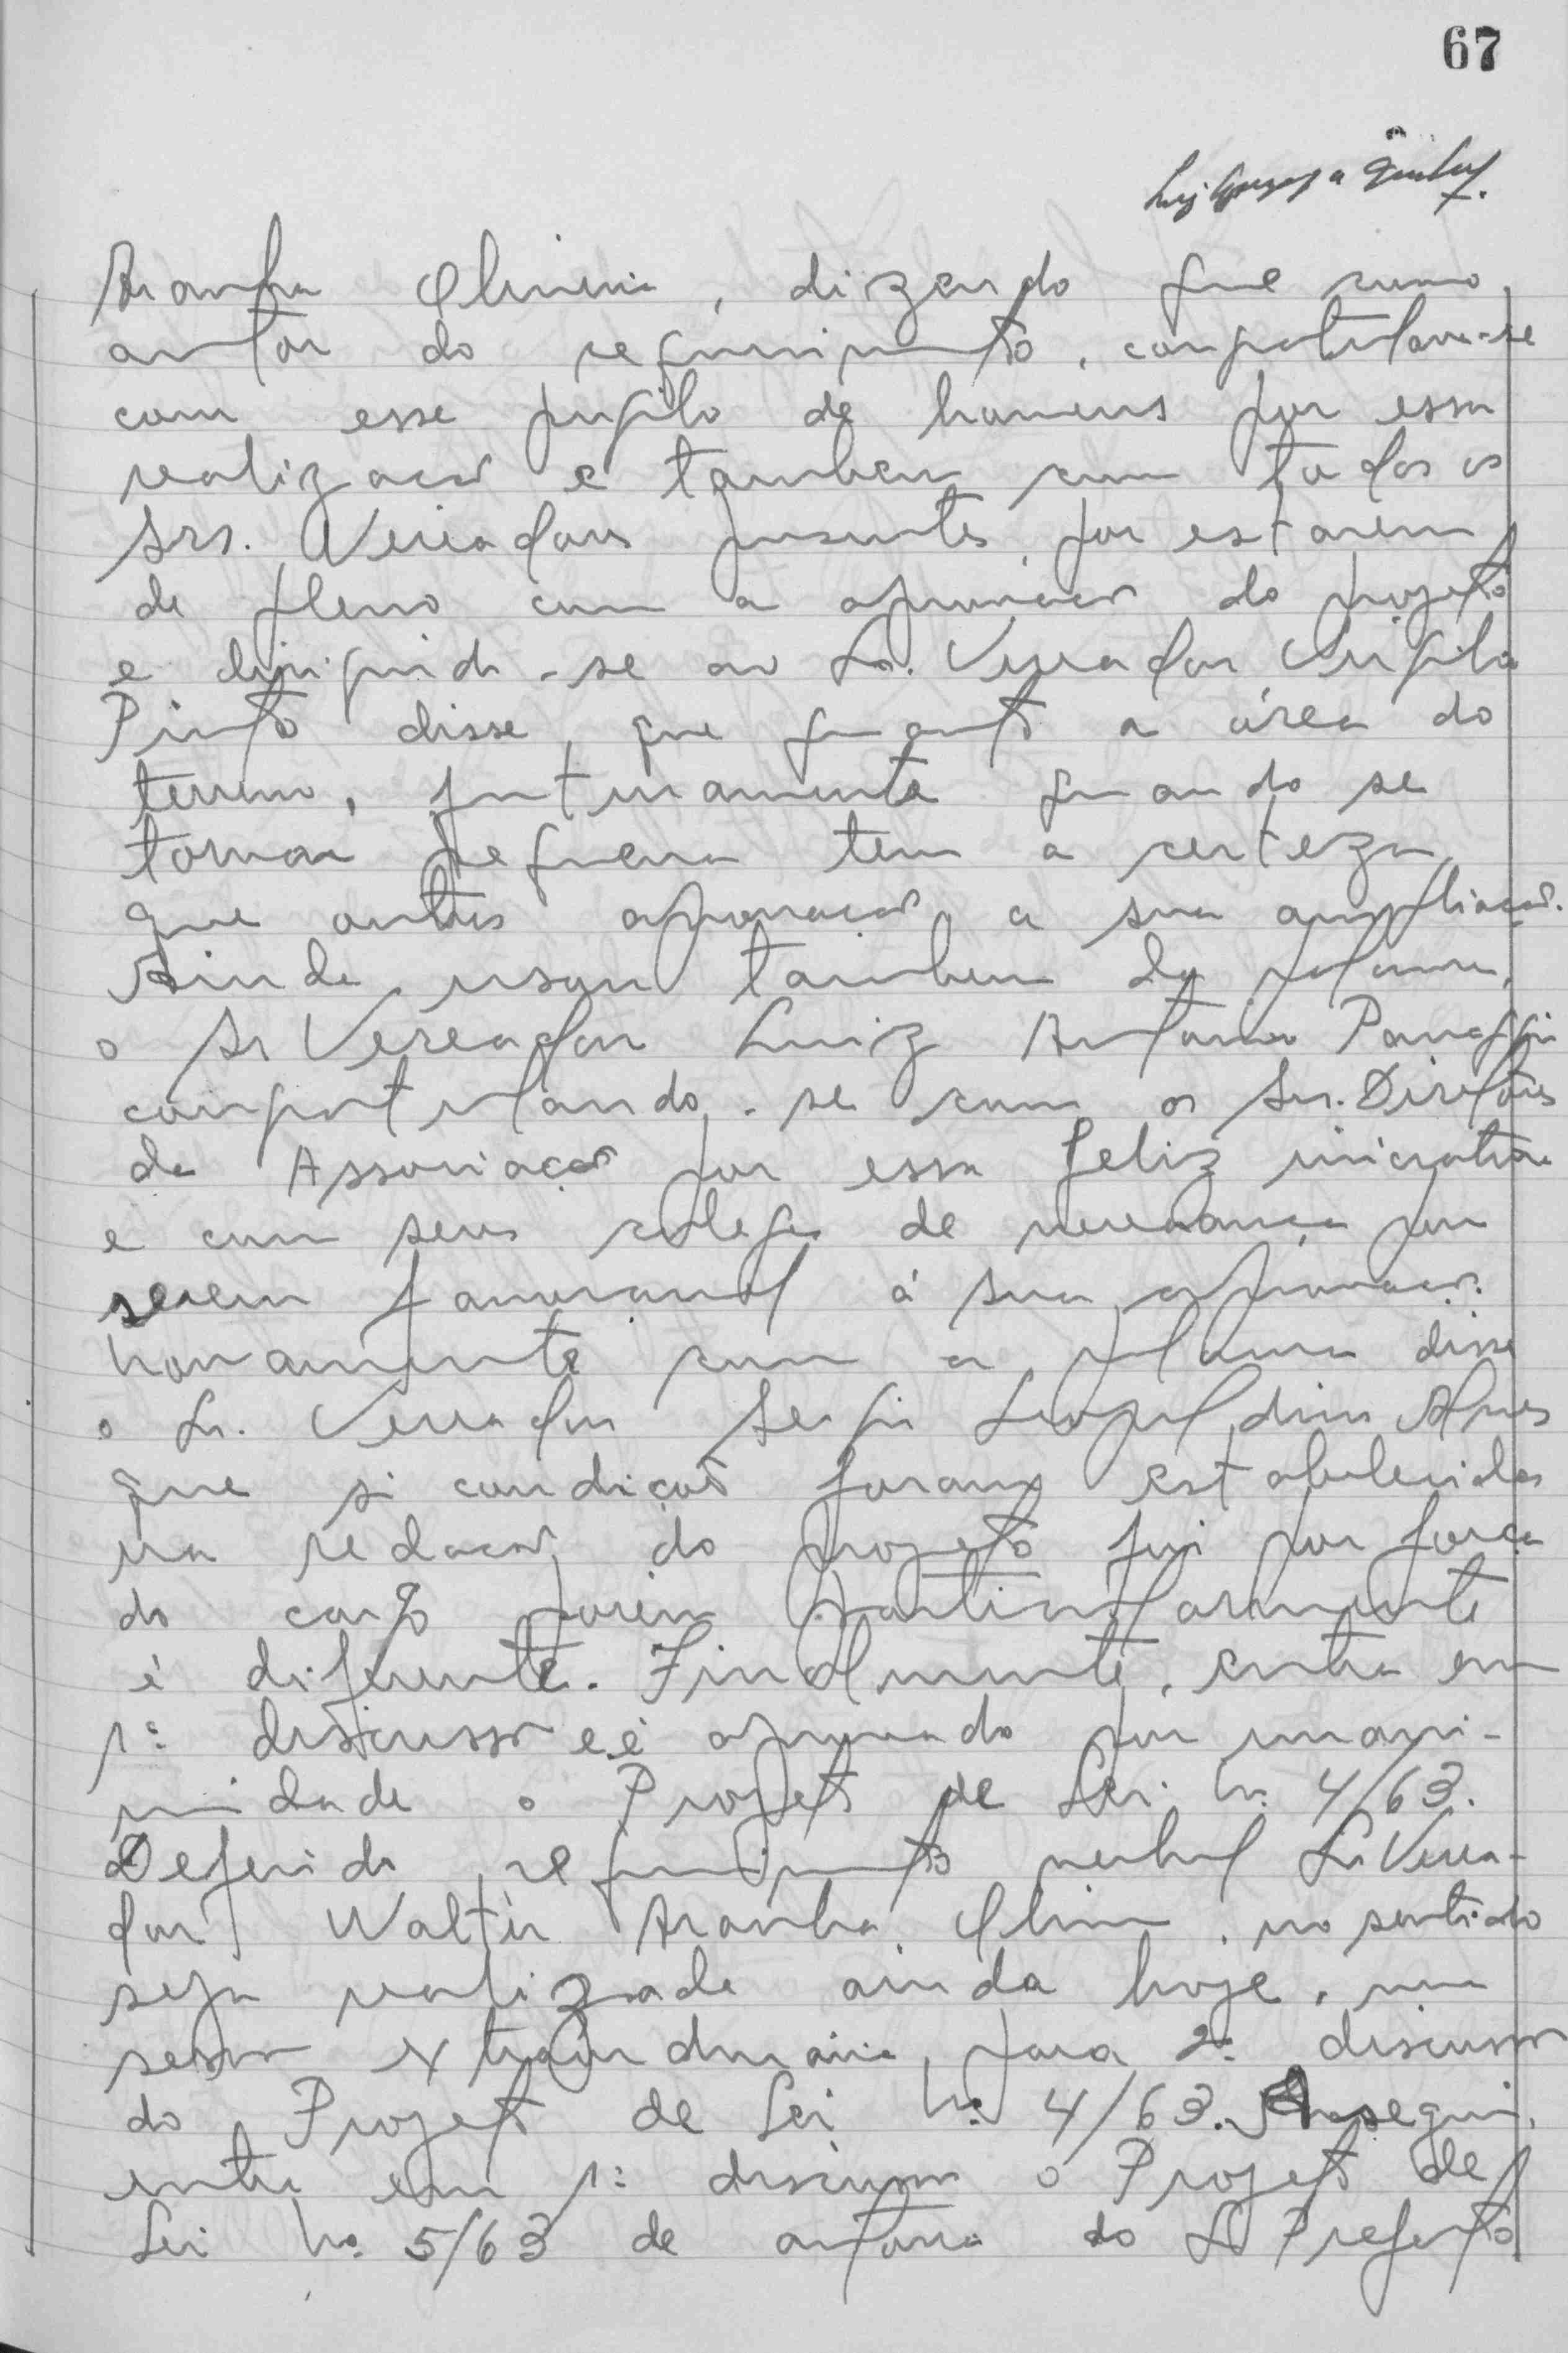 67
Aranha Oliveira, dizendo que como
autor do requerimento, congratulava-se
com esse pugilo de homens por essa
realização e tambem com todos os
Srs. Vereadores presentes, por estarem
de pleno com a aprovação do projeto
e dirigindo-se ao Sr. Vereador Virgilio
Pinto disse, que quanto a área do
terreno, futuramente quando se
tornar pequena tem a certeza
que outros aprovação a sua ampliação.
Ainda usou tambem da palavra,
o Sr Vereador Luiz Antonio
congratulando-se com os Srs. Diretores
da Associação por essa feliz iniciativa
e com seus colegas de vereança por
serem favoravel á sua aprovação.
Novamente com a palavra disse
o Sr. Vereador Sergio Leopoldino Alves
que si condições foram estabelecidas
na redação do projeto foi por força
do cargo porém particularmente
é diferente. Finalmente, entra em
1ª discussão e é aprovado por unani-
midade o Projeto de Lei nº 4/63.
Deferido requerimento verbal Sr Verea-
dor Walter Aranha Oliveira, no sentido
seja realizada ainda hoje, uma
sessão extraordinaria, para 2ª discussão
do Projeto de Lei nº 4/63. A seguir,
entra em 1ª discussão o Projeto de
Lei nº 5/63 de autoria do Sr Prefeito